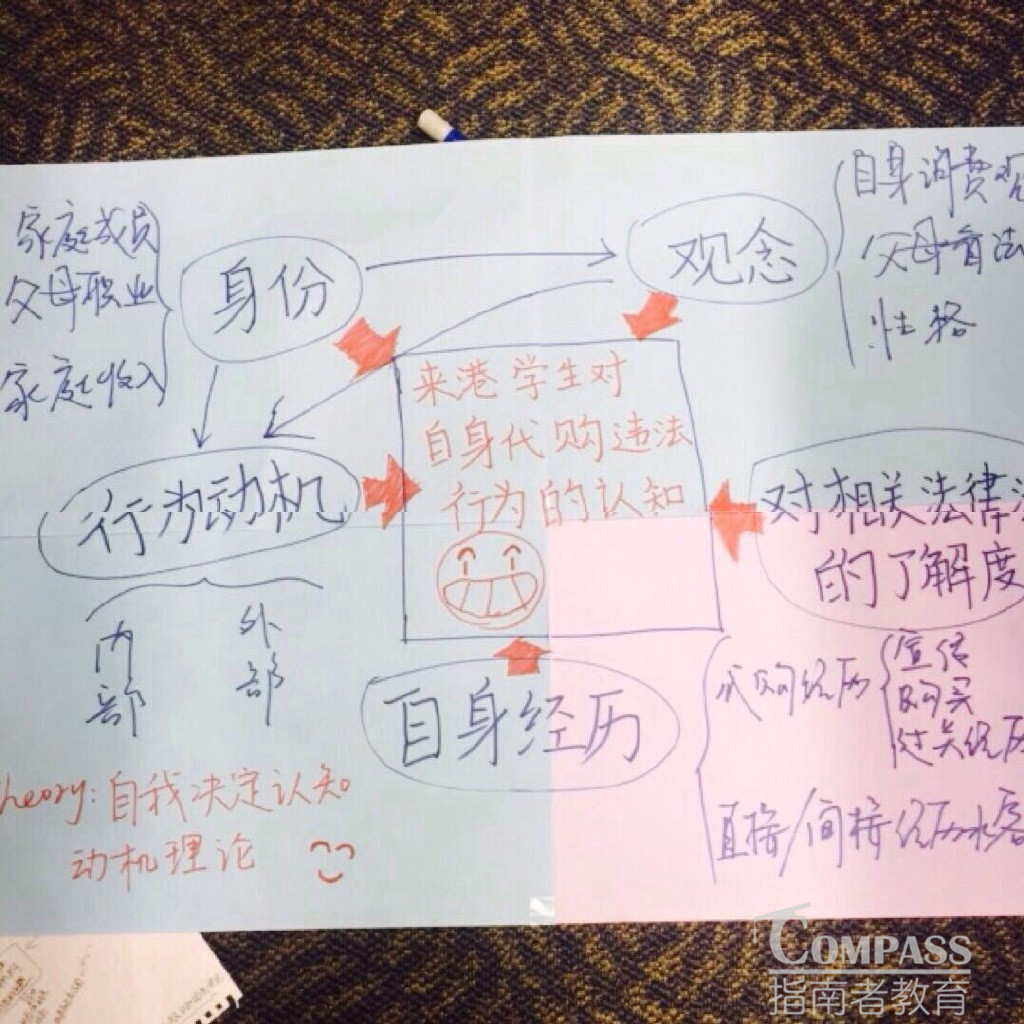 家庭成员
父母职业
家庭收入
身份
观念
自身消费观
父母看法
性格
来港学生对
自身代购违法
行为的认知
行为动机
内部
外部
对相关法律法
的了解度
自身经历
代购经历
宣传
购买
过关经历
直接/间接经历水客
Theory: 自我决定认知
动机理论
COMPASS
指南者教育